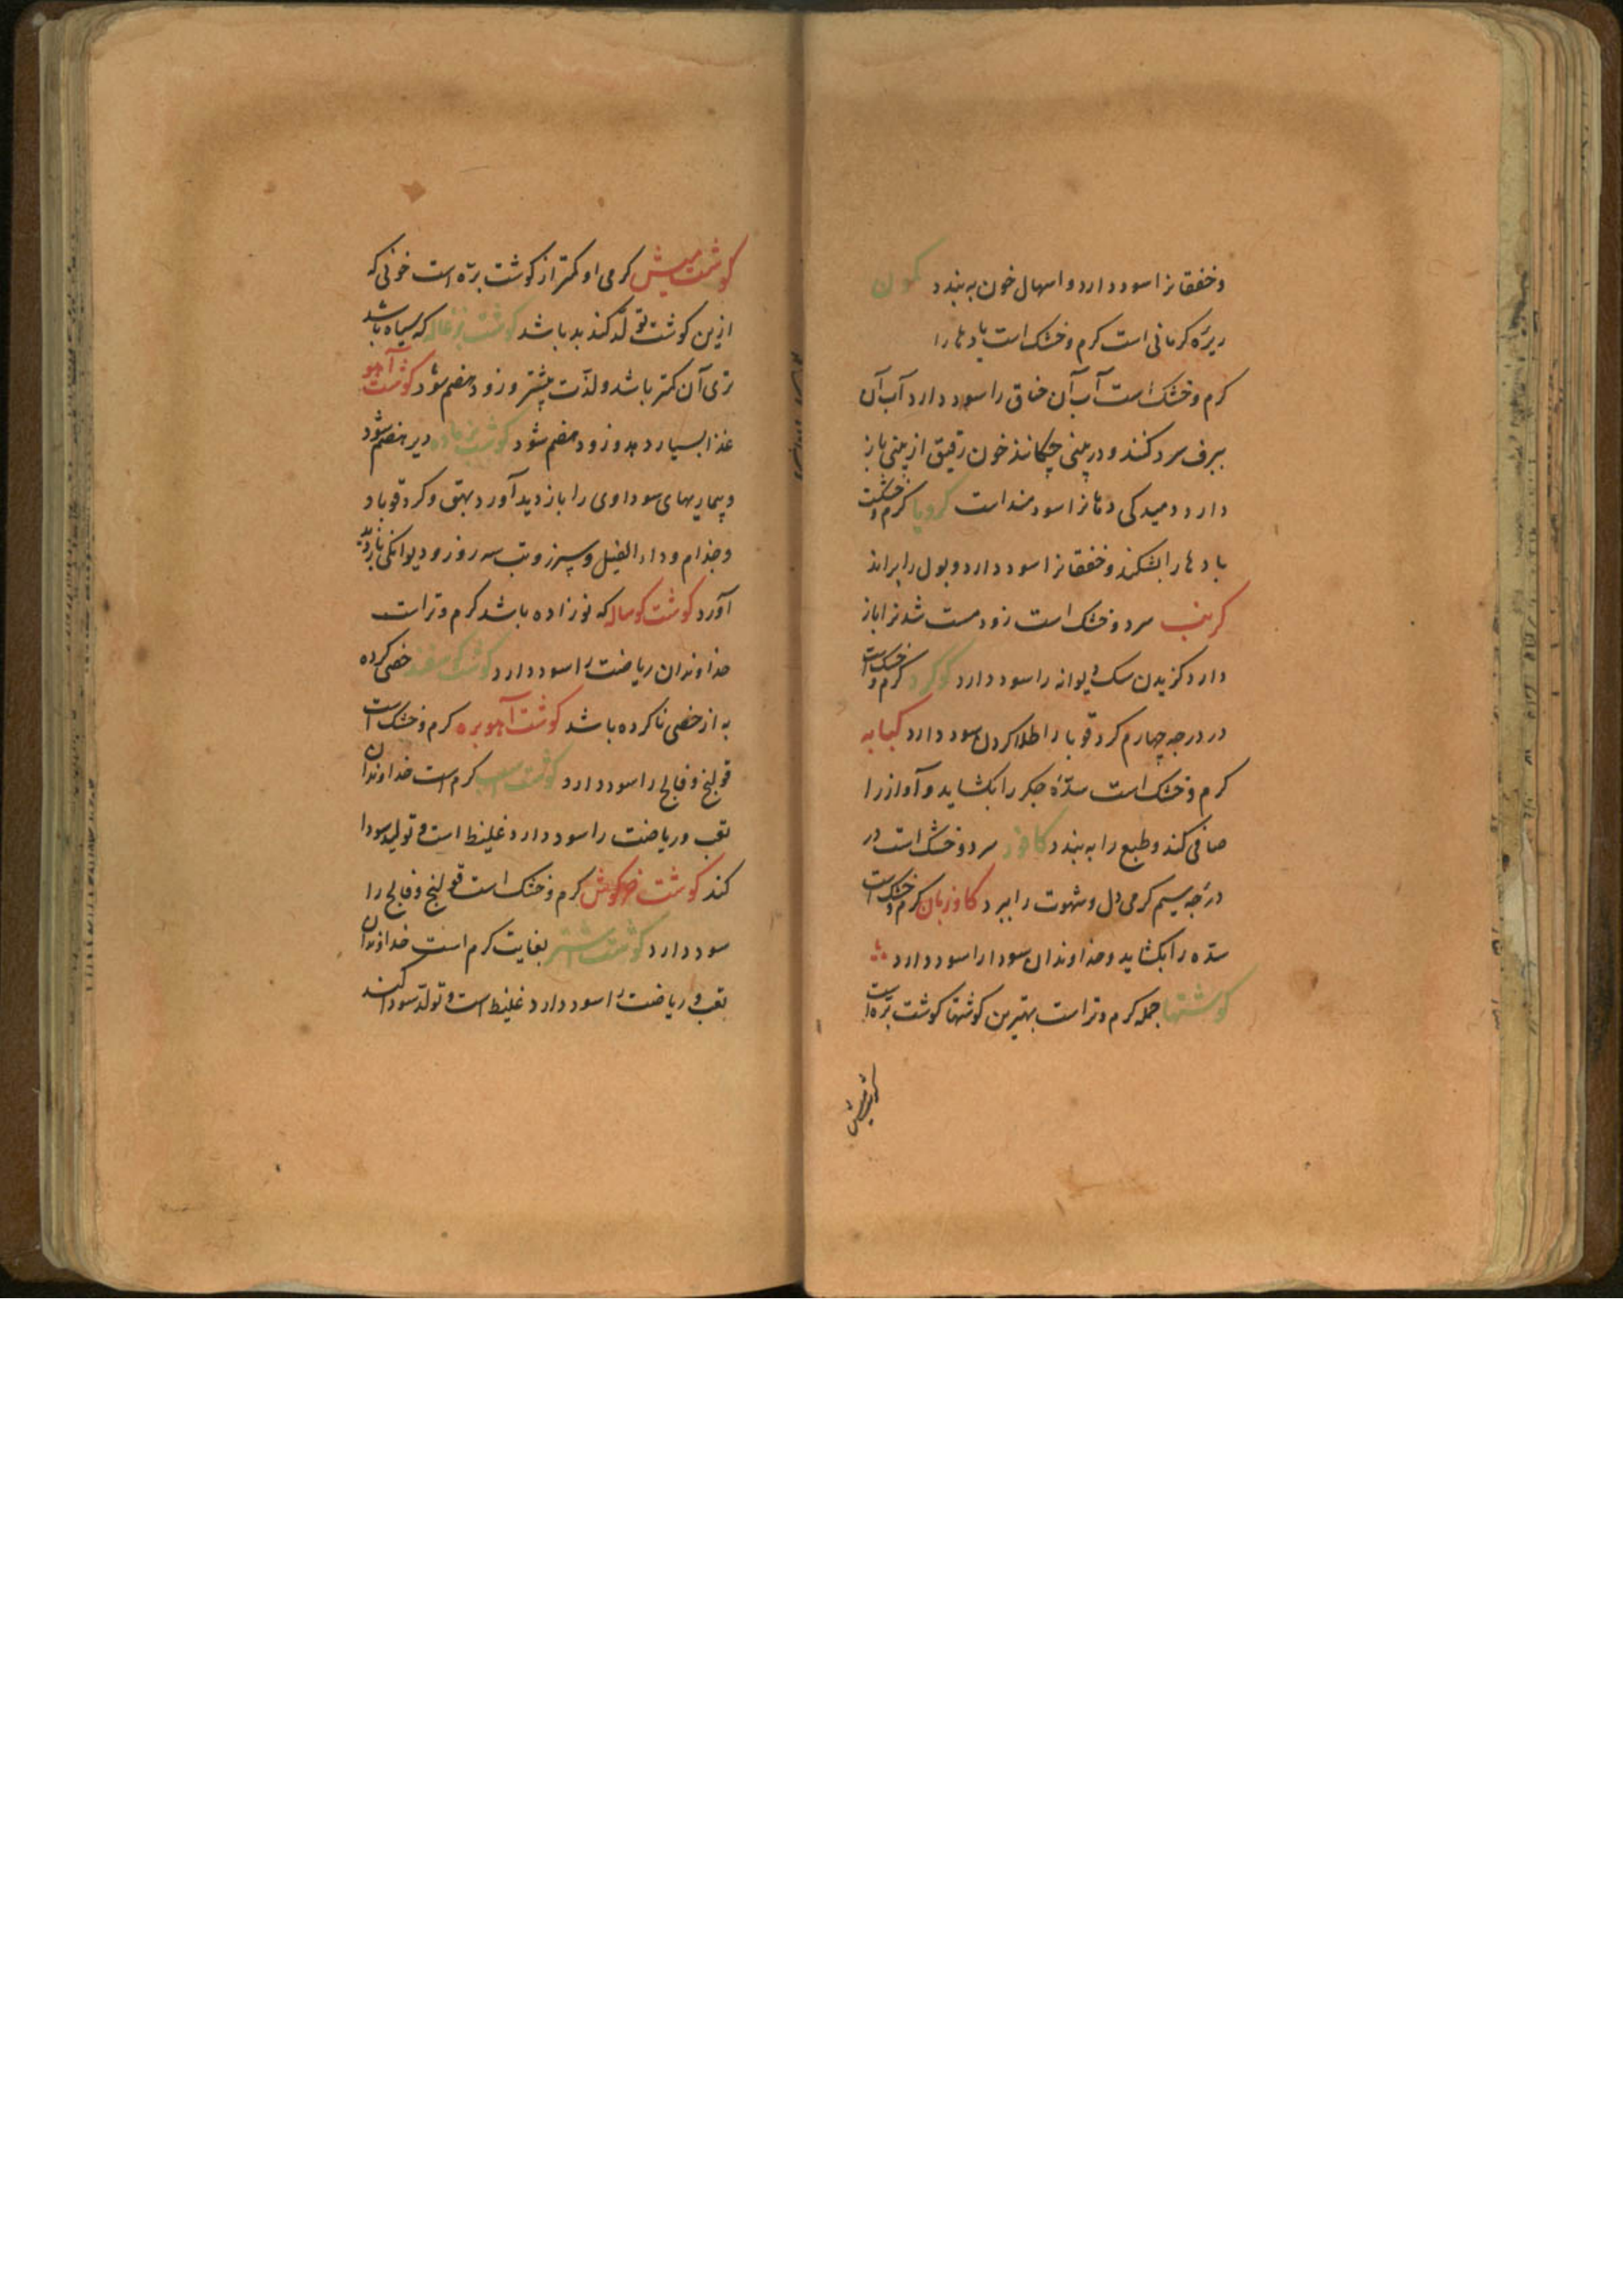 و خفقانرا سود دارد و اسهال خون به بندد کمون
ریزه کرمانی است کرم و خشک است بادها را
کرم و خشک است آب آن خناق را سود دارد آب آن
ببرف سرد کنند و در بینی چکانند خون رقیق از بینی باز
دارد دمیدکی دهانرا سودمند است کرویا کرم و خشکست
بادها را بشکند و خفقانرا سود دارد و بول را براند
کرنب سرد و خشک است زود مست شدنرا باز
دارد کزیدن سک دیوانه را سود دارد کوکرد کرم و خشک است
در درجه چهارم کر و قوبا را طلا کردن سود دارد کبابه
کرم و خشک است سدّه جکر را بکشاید و آواز را
صافی کند و طبع را به بندد کافور سرد و خشک است در
درجه سیم کرمی دل و شهوت را ببرد کاوزبان کرم و خشک است
سدّه را بکشاید و خداوندان سودا را سود دارد
کوشتها جمله کرم و تر است بهترین کوشتها کوشت برّه است
کوشت میش
کوشت میش کرمی او کمتر از کوشت برّه است خونی که
ازین کوشت تولّد کند بد باشد کوشت بزغاله که سیاه باشد
تری آن کمتر باشد و لذّت بیشتر و زود هضم شود کوشت آهو
غذا بسیار دهد و زود هضم شود کوشت بز ماده دیر هضم شود
و بیماریهای سوداوی را بازدید آورد بهق و کر و قوبا و
و جذام و داء الفیل و سپرز و تب سه روز و دیوانکی بازدید
آورد کوشت کوساله که نوزاده باشد کرم و تر است
خداوندان ریاضت را سود دارد کوشت کوسفند خصی کرده
به از خصی ناکرده باشد کوشت آهو بره کرم و خشک است
قولنج و فالج را سود دارد کوشت اسب کرم است خداوندان
تعب و ریاضت را سود دارد غلیظ است و تولید سودا
کند کوشت خرکوش کرم و خشک است قولنج و فالج را
سود دارد کوشت شتر بغایت کرم است خداوندان
تعب و ریاضت را سود دارد غلیظ است و تولّد سودا کند